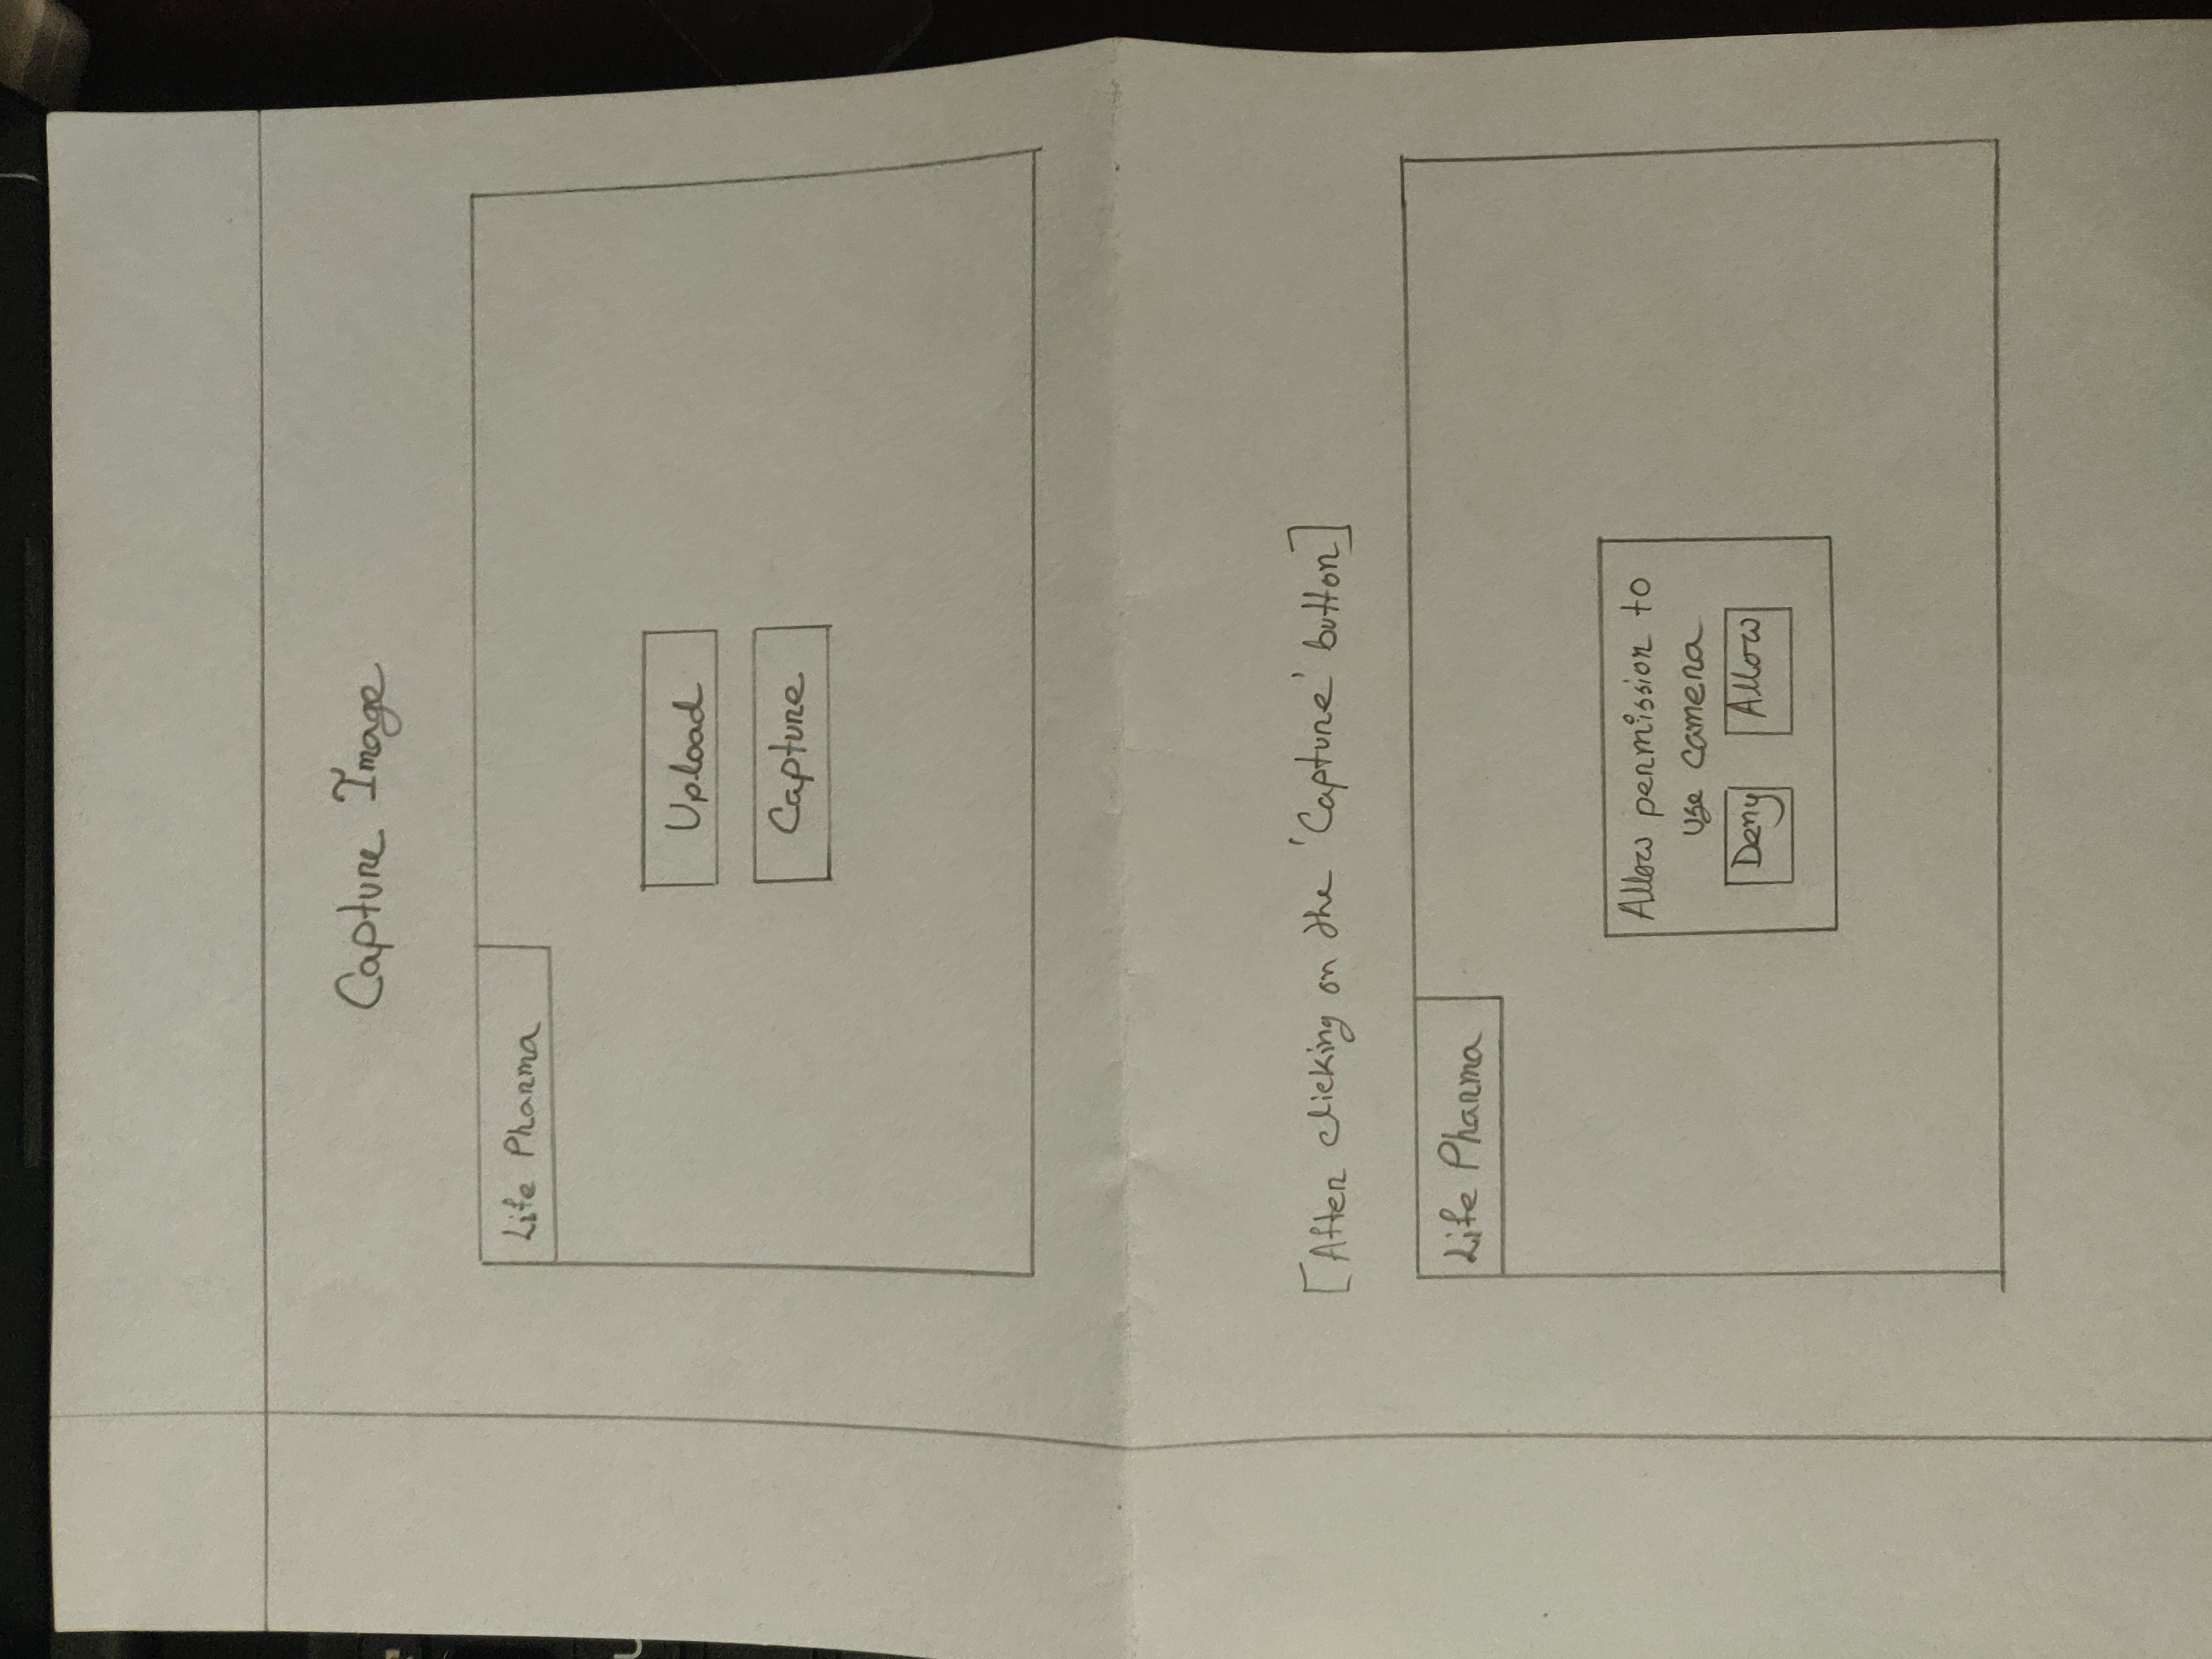 Capture Image
Life Pharma
Upload
Capture
[After clicking on the 'Capture' button]
Life Pharma
Allow permission to
use camera
Deny Allow